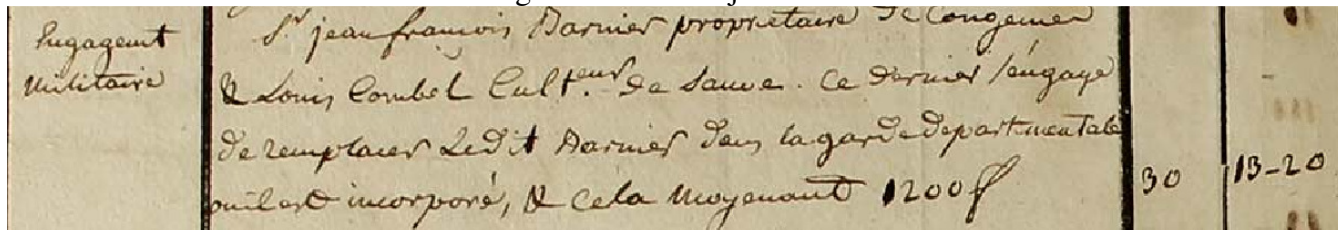 Engagemt
Militaire
Sr jean françois Barnier propriétaire de Congenies
& Louis Combel Cult.eur de Sauve. Ce dernier s'engage
de remplacer Ledit Barnier dans la garde departementale
ou il est incorporé, & Cela Moyenant 1200 ff
30
13-20